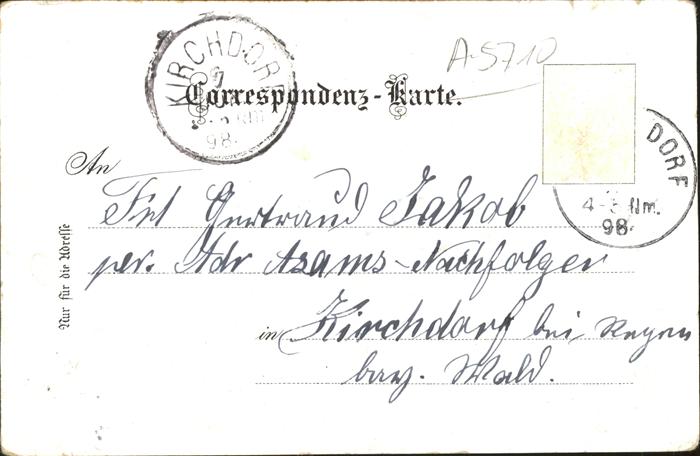 A-5710
KIRCHDORF
98.
Correspondenz-Karte.
DORF
4-5 Nm.
98.
An
Frl Gertraud Jakob
per. Adr Asams-Nachfolger
in Kirchdorf bei Regen
bay. Wald.
Nur für die Adresse